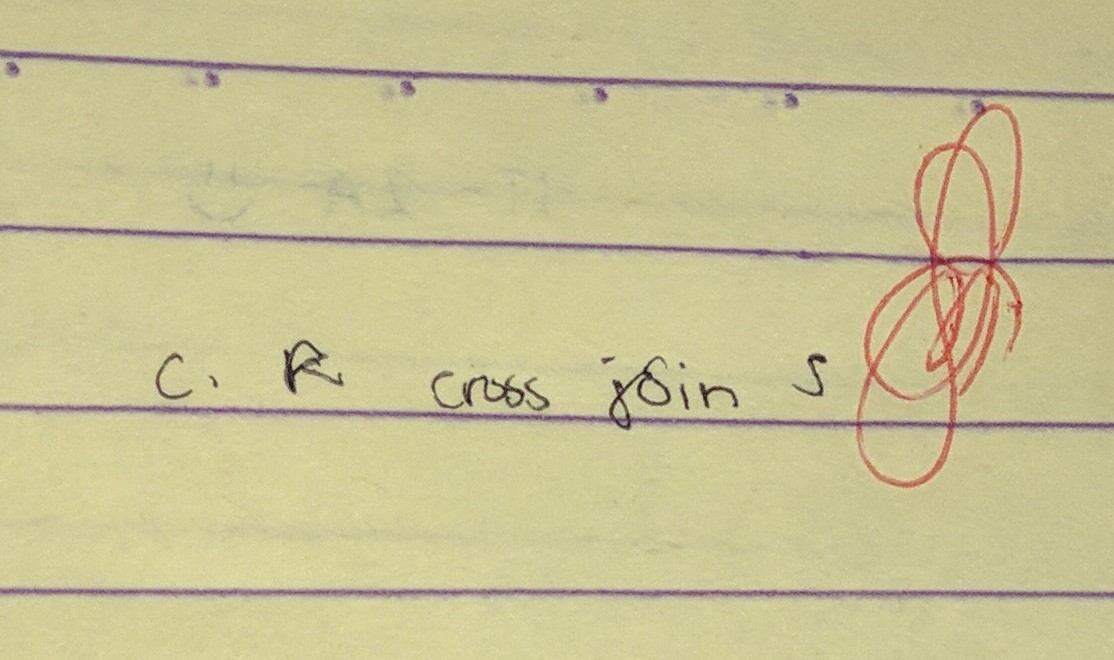 C. R cross join S